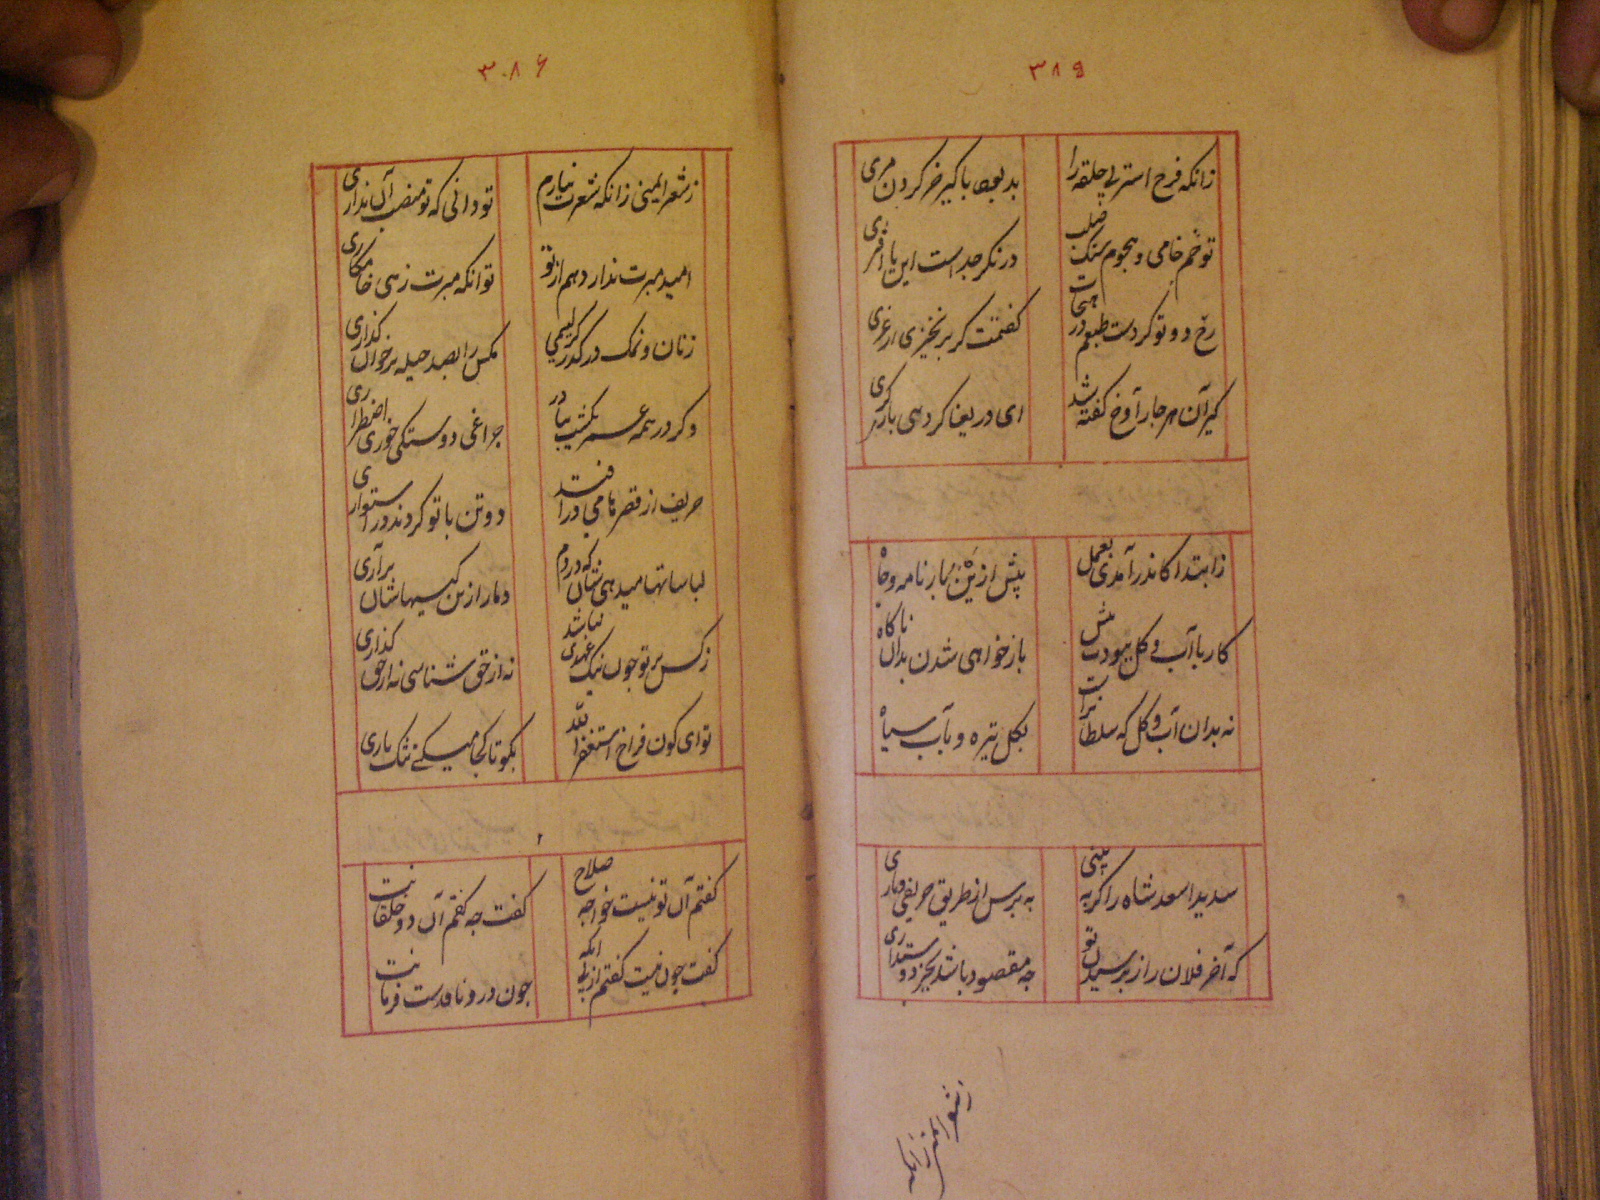 ۳۸۵
زانکه فرخ استر بی حلقه را
بد بود با کیر خر کردن مری
تو خم خامی و هجوم سنک صلب
درنکر جد است این یا
رخ دو تو کردست طبعم در هجات
کفتمت کر برنخیزی از غری
کیر آن هر جار آوخ کفته شد
ای دریغا کردهی
زابتدا کاندر آمدی بعمل
پیش ازین بارنامه و جاه
کار با آب و کل نبودت بیش
باز خواهی شدن بدان ناکاه
نه بدان آب و کل که سلطانراست
بکل تیره و بآب سیاه
سدید اسعد شاه را کر به بینی
به پرس از طریق حریفی و یاری
که آخر فلان را ز پرسیدن تو
جه مقصود باشد بجز دوستداری
ز شعر ایمنی زانکه
۳۰۸۶
ز شعر ایمنی زانکه شعرت نیارم
تو دانی که تو منصب آن نداری
امید مبرت ندارد هم از تو
توانکه مبرت زهی خامکاری
زنان و نمک در کدر کر لیمی
مکس را بصد حیله بر خوان کذاری
و کر در همه عمر یکشب بنادر
جراغی دوستکی خوری اضطراری
حریف از قصر ها می درافتد
دو تن با تو کردند در استواری
لباساتها میدهی شان که در دم
دمار از بن کیسهاشان برآری
ز کس بر تو جون نیک عهدی نباشد
نه از حق شناسی نه از حق کذاری
تو ای کون فراخ استغفر الله
بکو تا کجا میکنی تنک باری
کفتم آن تو نیست خواجه صلاح
کفت جه کفتم آن دو خلقانت
کفت جون نیست کفتم از پی آنکه
جون درونا قدست فرمانت